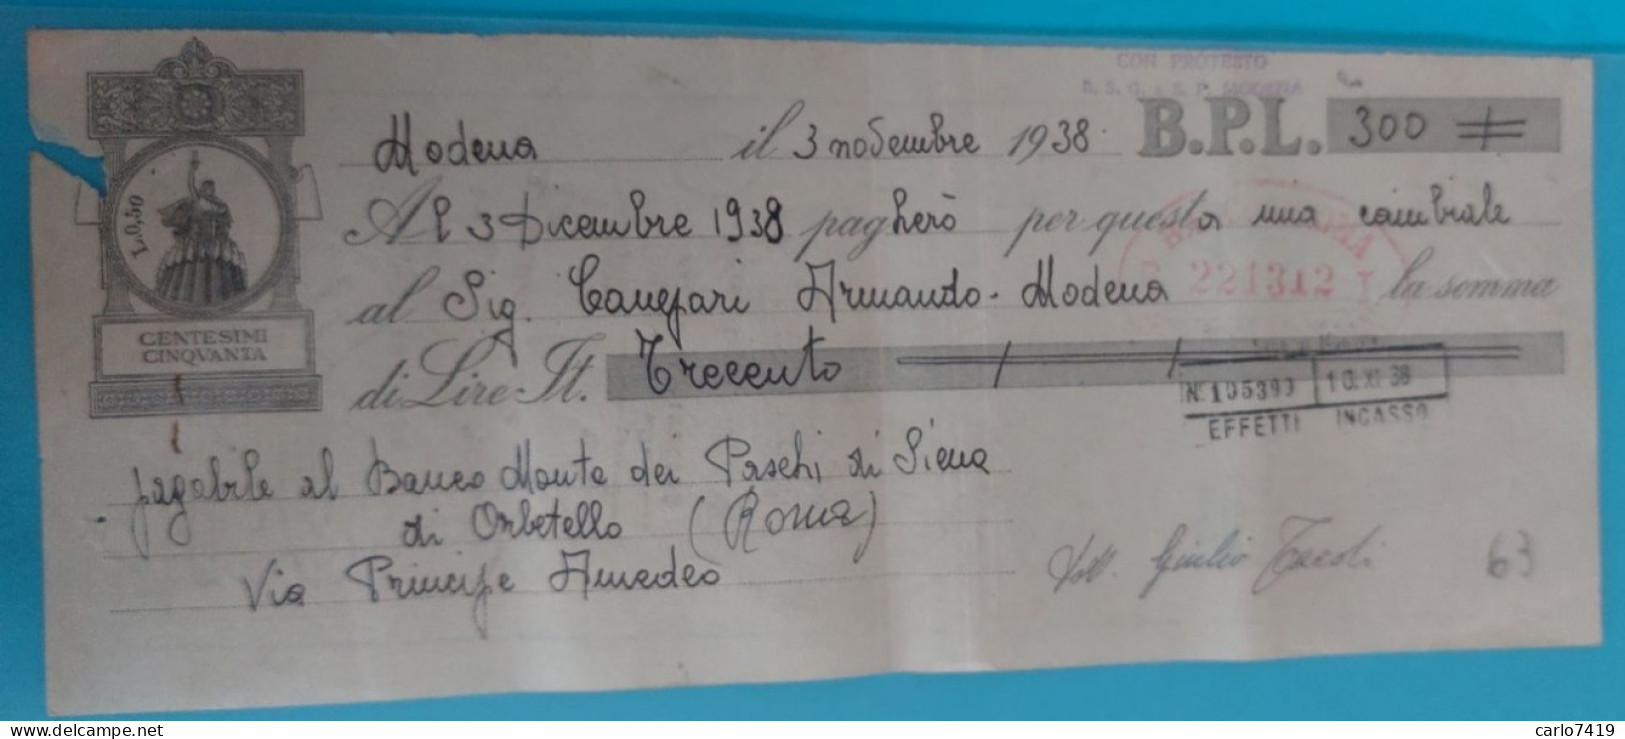 CON PROTESTO
B. S. G. e S. P. MODENA
Modena il 3 novembre 1938 B.P.L. 300
L.0,50
Al 3 Dicembre 1938 pagherò per questa una cambiale
al Sig. Canepari Armando - Modena 221312 la somma
CENTESIMI
CINQVANTA
di Lire It. Trecento
No 105393 10.XI.38
EFFETTI INCASSO
pagabile al Banco Monte dei Paschi di Siena
di Orbetello (Roma)
Via Principe Amedeo
Dott. Giulio Tacoli 63
carlo7419